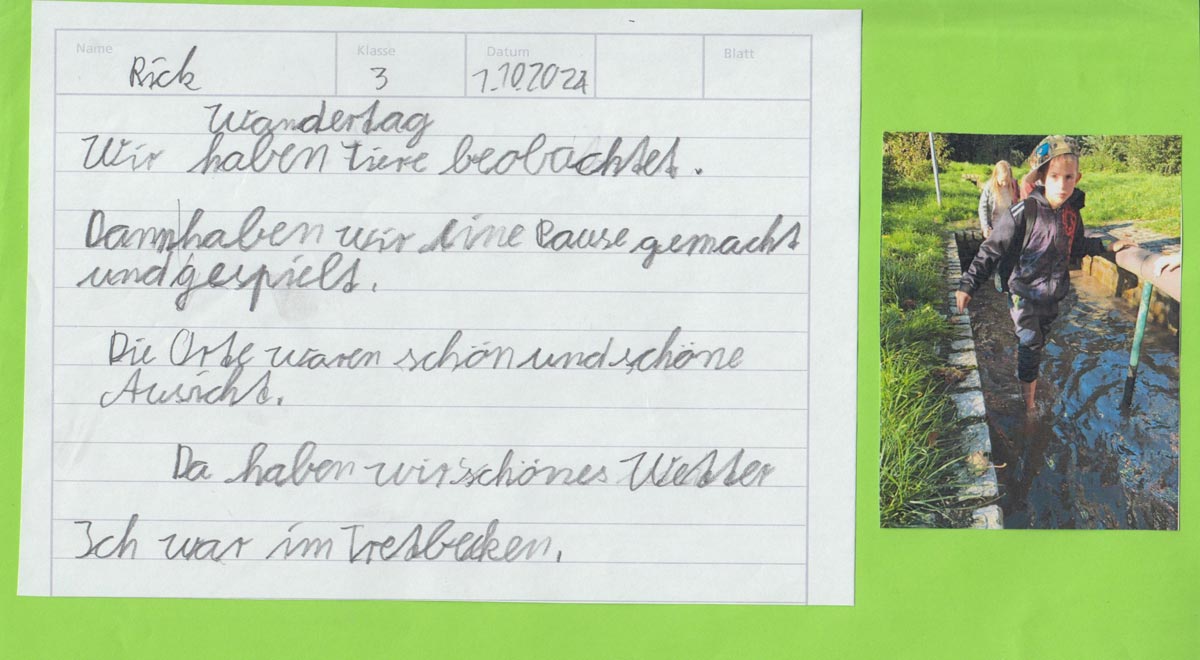 Name Klasse Datum Blatt
Rick 3 1.10.2024
Wandertag
Wir haben Tiere beobachtet.
Dann haben wir eine Pause gemacht
und gespielt.
Die Orte waren schön und schöne
Ausicht.
Da haben wir schönes Wetter
Ich war im Tretbecken.